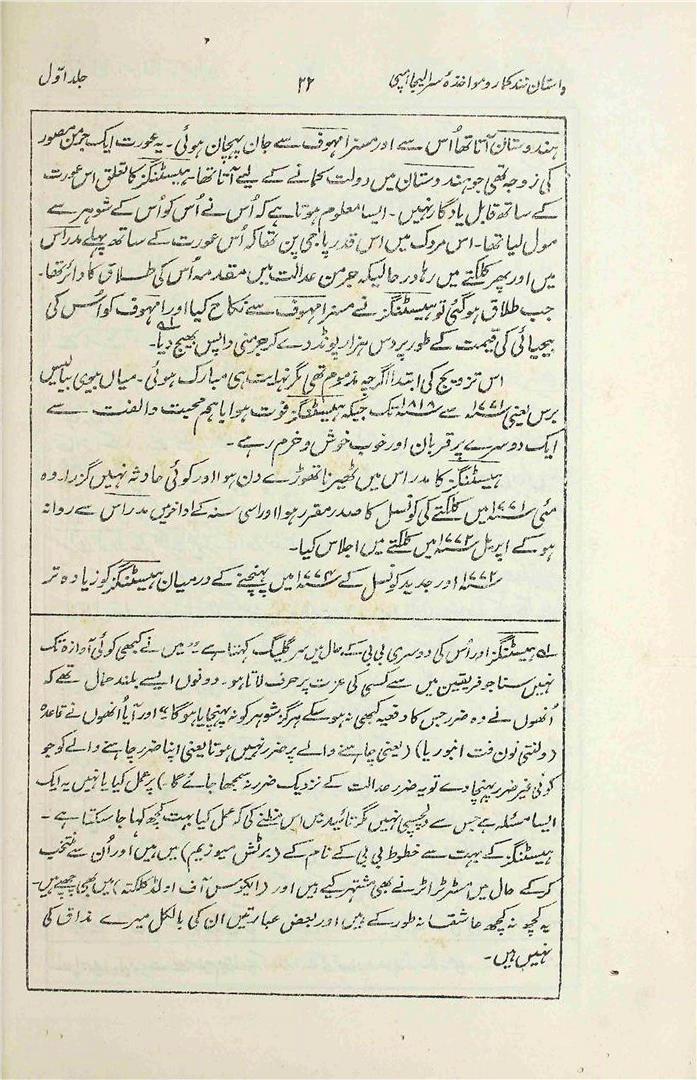 داستان نندکمار و مواخذہ سر الیجا امپی ۲۲ جلد اوّل
ہندوستان آتا تھا اُس سے اور مسز امہوف سے جان پہچان ہوئی۔ یہ عورت ایک جرمن مصور
کی زوجہ تھی جو ہندوستان میں دولت کمانے کے لیے آتا تھا۔ ہیسٹنگز کا تعلق اس عورت
کے ساتھ قابل یادگار نہیں۔ ایسا معلوم ہوتا ہے کہ اُس نے اُس کو اُس کے شوہر سے
مول لیا تھا۔ اس مردک میں اس قدر پاجی پن تھا کہ اُس عورت کے ساتھ پہلے مدراس
میں اور پھر کلکتے میں رہا درحالیکہ جرمن عدالت میں مقدمہ اُس کی طلاق کا دائر تھا۔
جب طلاق ہوگئی تو ہیسٹنگز نے مسز امہوف سے نکاح کیا اور امہوف کو اُس کی
بیحیائی کی قیمت کے طور پر دس ہزار پونڈ دے کر جرمنی واپس بھیج دیا۔
اس تزویج کی ابتدا اگرچہ مذموم تھی مگر نہایت ہی مبارک ہوئی۔ میاں بیوی بیالیس
برس یعنی ۱۷۷۱ء سے ۱۸۱۸ء تک جبکہ ہیسٹنگز فوت ہوا باہم محبت و الفت سے
ایک دوسرے پر قربان اور خوب خوش و خرم رہے۔
ہیسٹنگز کا مدراس میں ٹھیرنا تھوڑے دن ہوا اور کوئی حادثہ نہیں گزرا۔ وہ
مئی ۱۷۷۱ء میں کلکتے کی کونسل کا صدر مقرر ہوا اور اسی سنہ کے اواخر میں مدراس سے روانہ
ہو کے اپریل ۱۷۷۲ء میں کلکتے میں اجلاس کیا۔
۱۷۷۲ء اور جدید کونسل کے ۱۷۷۴ء میں پہنچنے کے درمیان ہیسٹنگز کو زیادہ تر
لہ ہیسٹنگز اور اُس کی دوسری بی بی کے حال میں سر گلیگ کہتا ہے "میں نے کبھی کوئی آوازہ تک
نہیں سنا جو فریقین میں سے کسی کی عزت پر حرف لاتا ہو۔ دونوں ایسے بلند حال تھے کہ
اُنھوں نے وہ ضرر جس کا دفعیہ کبھی نہ ہوسکے ہرگز شوہر کو نہ پہنچایا ہوگا" اور آیا اُنھوں نے قاعدۂ
(ولنٹی نون فٹ انیوریا) (یعنی چاہنے والے پر ضرر نہیں ہوتا یعنی اپنا ضرر چاہنے والے کو جو
کوئی غیر ضرر پہنچا دے تو یہ ضرر عدالت کے نزدیک ضرر نہ سمجھا جائے گا۔) پر عمل کیا یا نہیں یہ ایک
ایسا مسئلہ ہے جس سے دلچسپی نہیں مگر تائید میں اس کی کہ عمل کیا بہت کچھ کہا جا سکتا ہے۔
ہیسٹنگز کے بہت سے خطوط بی بی کے نام کے (برٹش میوزیم) میں ہیں اور اُن سے منتخب
کرکے حال میں مسٹر نے بھی مشتہر کیے ہیں اور (ایکوس آف اولڈ کلکتہ) میں بھی چھپے ہیں۔
یہ کچھ نہ کچھ عاشقانہ طور کے ہیں اور بعض عبارتیں ان کی بالکل میرے مذاق کی
نہیں ہیں۔